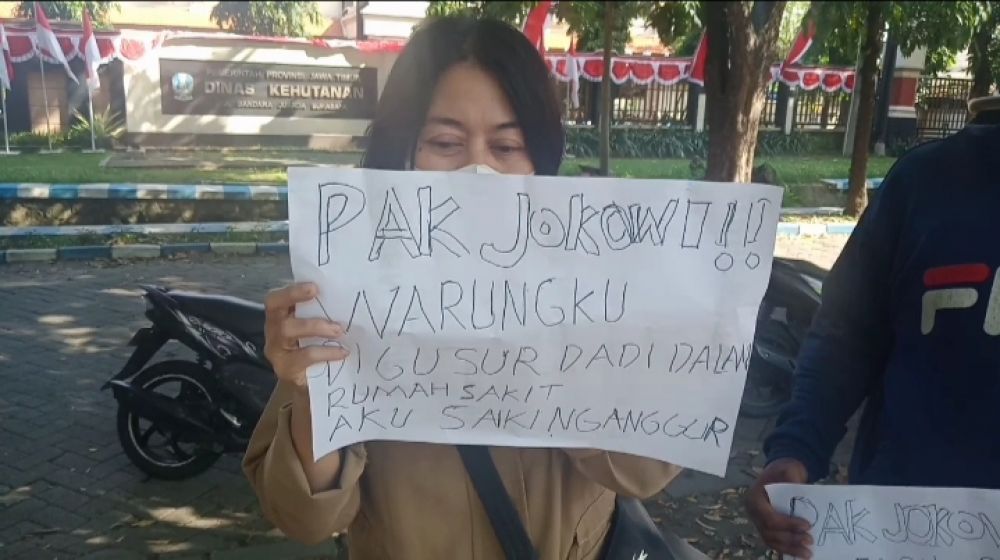 PEMERINTAH PROVINSI JAWA TIMUR
DINAS KEHUTANAN
BANDARA JUANDA SURABAYA
PAK JOKOWI!!!
WARUNGKU
DIGUSUR DADI DALAN
RUMAH SAKIT
AKU SAIKI NGANGGUR
PAK JOKOW